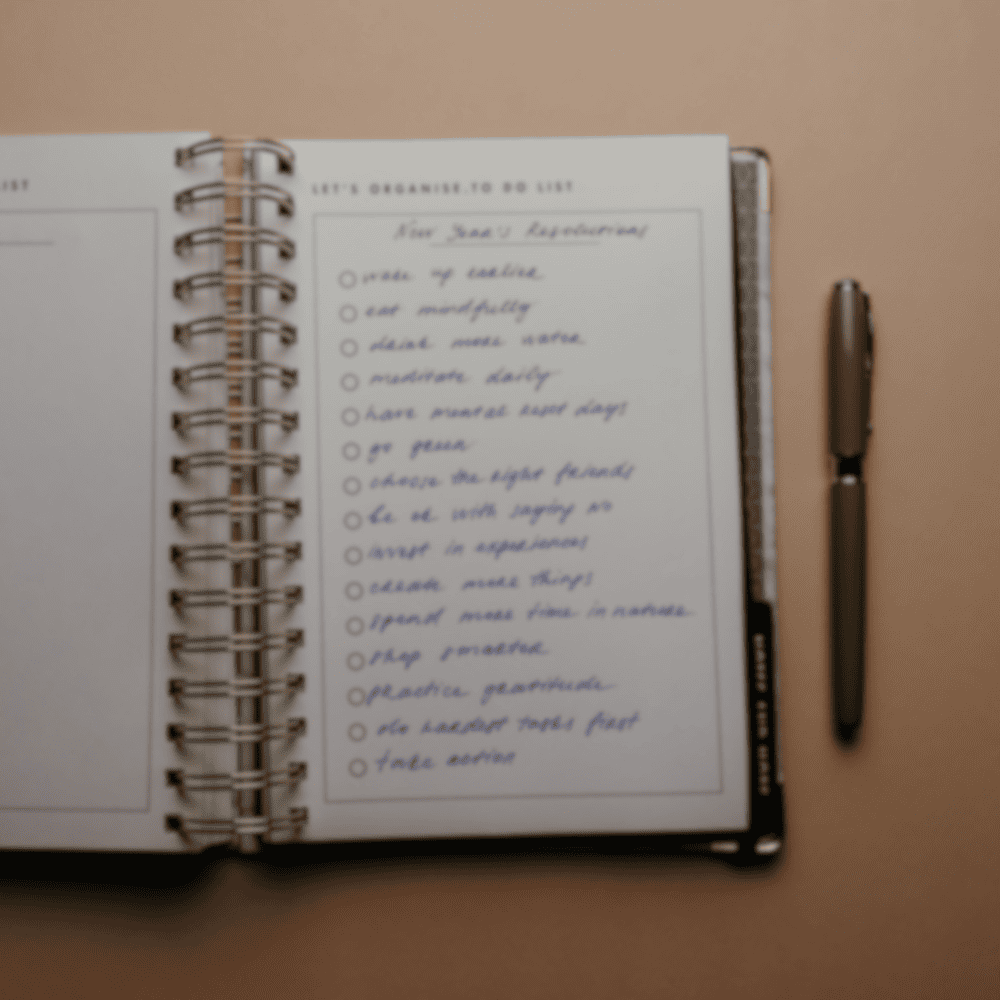 LIST
LET'S ORGANISE.TO DO LIST
New Year's Resolutions
wake up earlier
eat mindfully
drink more water
meditate daily
have mental reset days
go green
choose the right friends
be ok with saying no
invest in experiences
create more things
spend more time in nature
shop smarter
practice gratitude
do hardest tasks first
take action